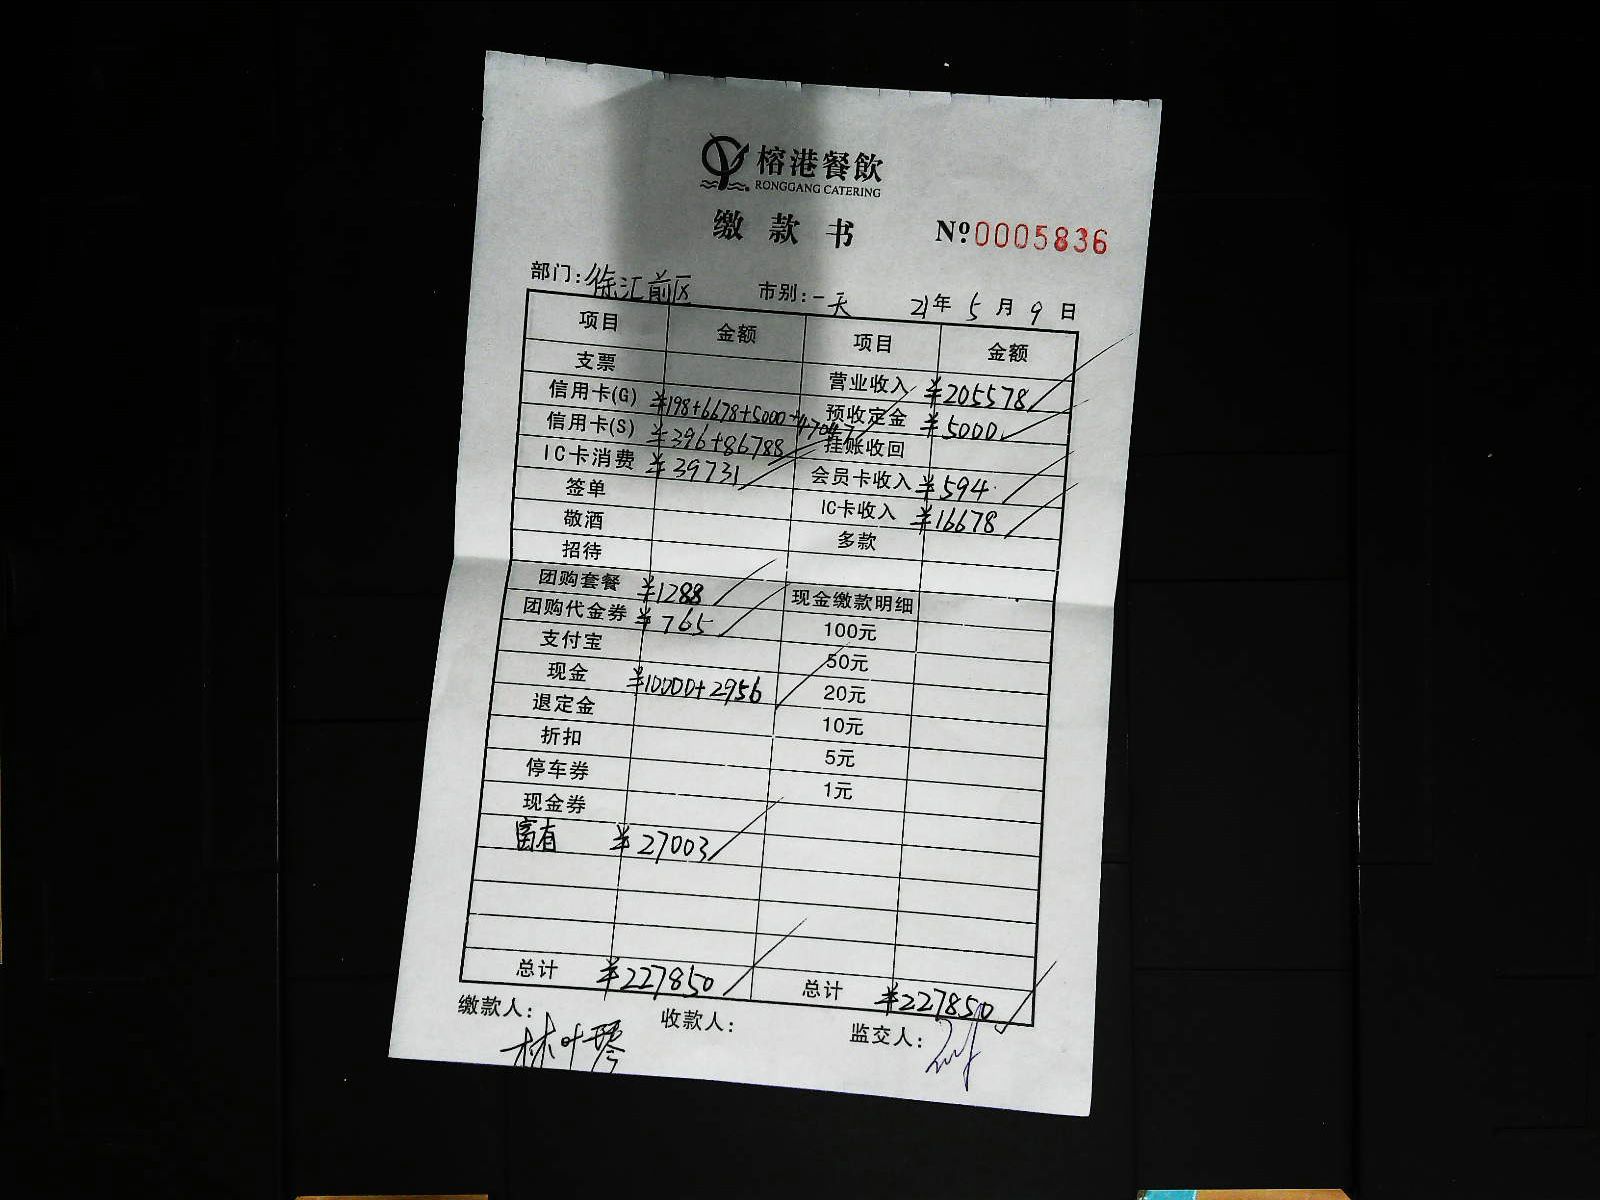 榕港餐飲
RONGGANG CATERING
缴款书 Nº0005836
部门:徐汇前区 市别:一天 21年5月9日
项目 金额 项目 金额
支票 营业收入 ¥205578
信用卡(G) ¥198+6678+5000+47047 预收定金 ¥5000
信用卡(S) ¥396+86788 挂账收回
IC卡消费 ¥39731 会员卡收入 ¥594
签单 IC卡收入 ¥16678
敬酒 多款
招待
团购套餐 ¥1288 现金缴款明细
团购代金券 ¥765 100元
支付宝 50元
现金 ¥10000+2956 20元
退定金 10元
折扣 5元
停车券 1元
现金券
富有 ¥27003
总计 ¥227850 总计 ¥227850
缴款人: 收款人: 监交人:
林叶琴